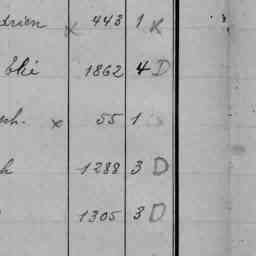 drien x 443 1 K
ski 1862 4 D
sch. x 55 1
h 1288 3 D
1305 3 D